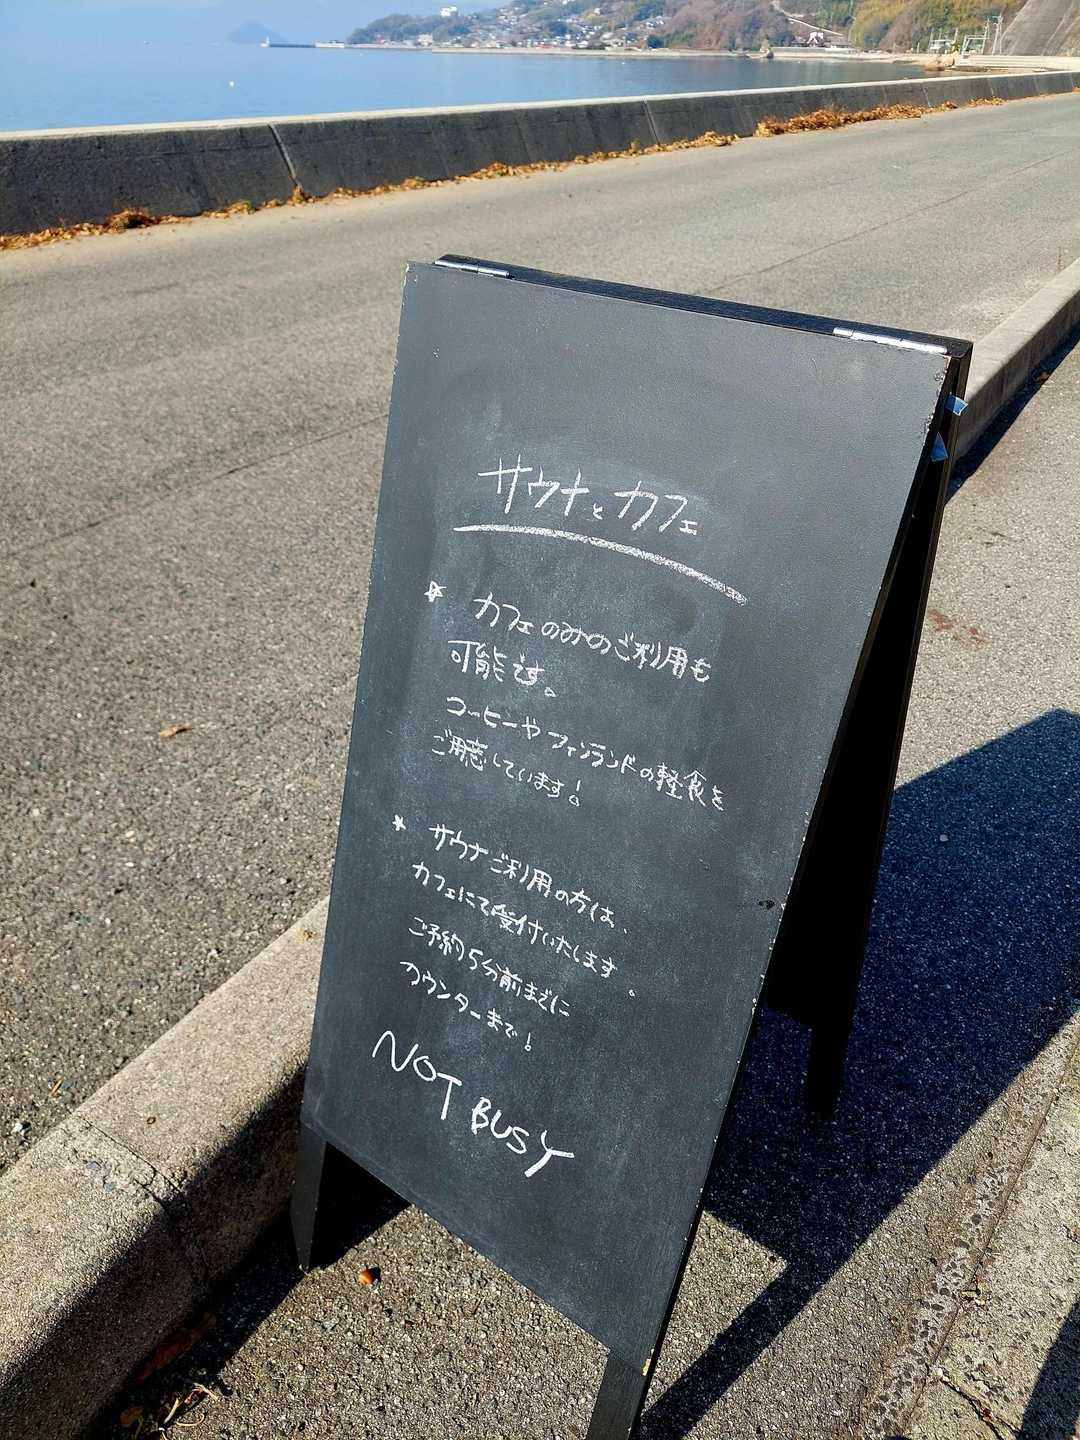 サウナとカフェ
☆ カフェのみのご利用も
可能です。
コーヒーやフィンランドの軽食を
ご用意しています!
☆ サウナご利用の方は、
カフェにて受付いたします。
ご予約5分前までに
カウンターまで!
NOT BUSY